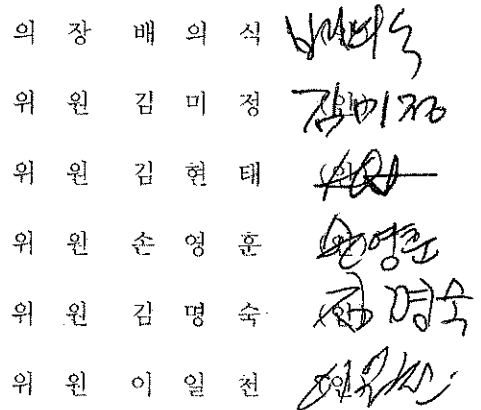 의 장 배 의 식 배의식
위 원 김 미 정 김미정
위 원 김 현 태
위 원 손 영 훈 손영훈
위 원 김 명 숙 김명숙
위 원 이 일 천